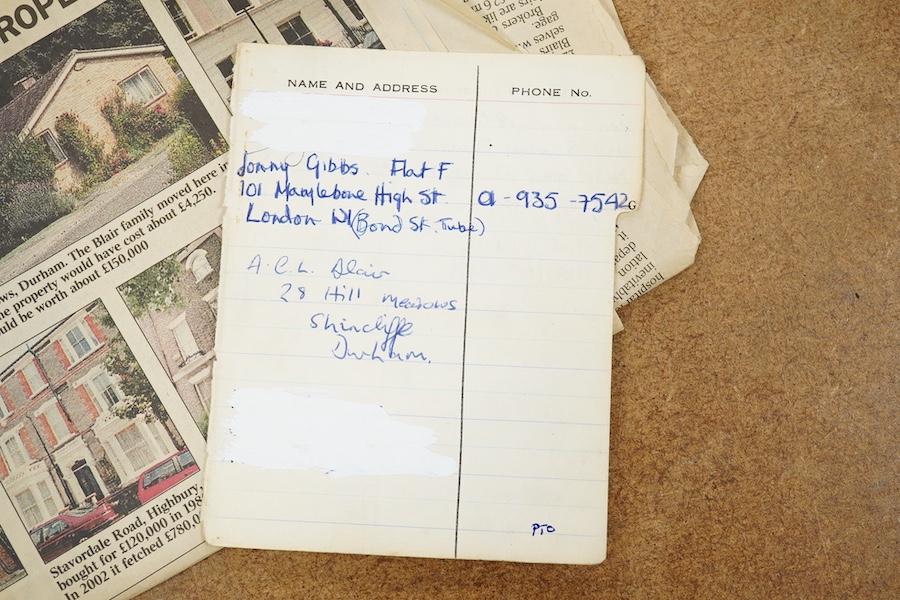 ROPE
NAME AND ADDRESS
PHONE No.
Jonny Gibbs. Flat F
101 Marylebone High St
01-935-7542
G
London W1 (Bond St. Tube)
A.C.L. Blair
28 Hill Meadows
Shincliffe
Durham.
PTO
ws, Durham. The Blair family moved here in
he property would have cost about £4,250.
uld be worth about £150,000
Stavordale Road, Highbury,
bought for £120,000 in 198
In 2002 it fetched £780,0
£2.6 m
airs are lik
Brokers
gage.
selves w
Blairs
it
lation
inevitabl
hospital